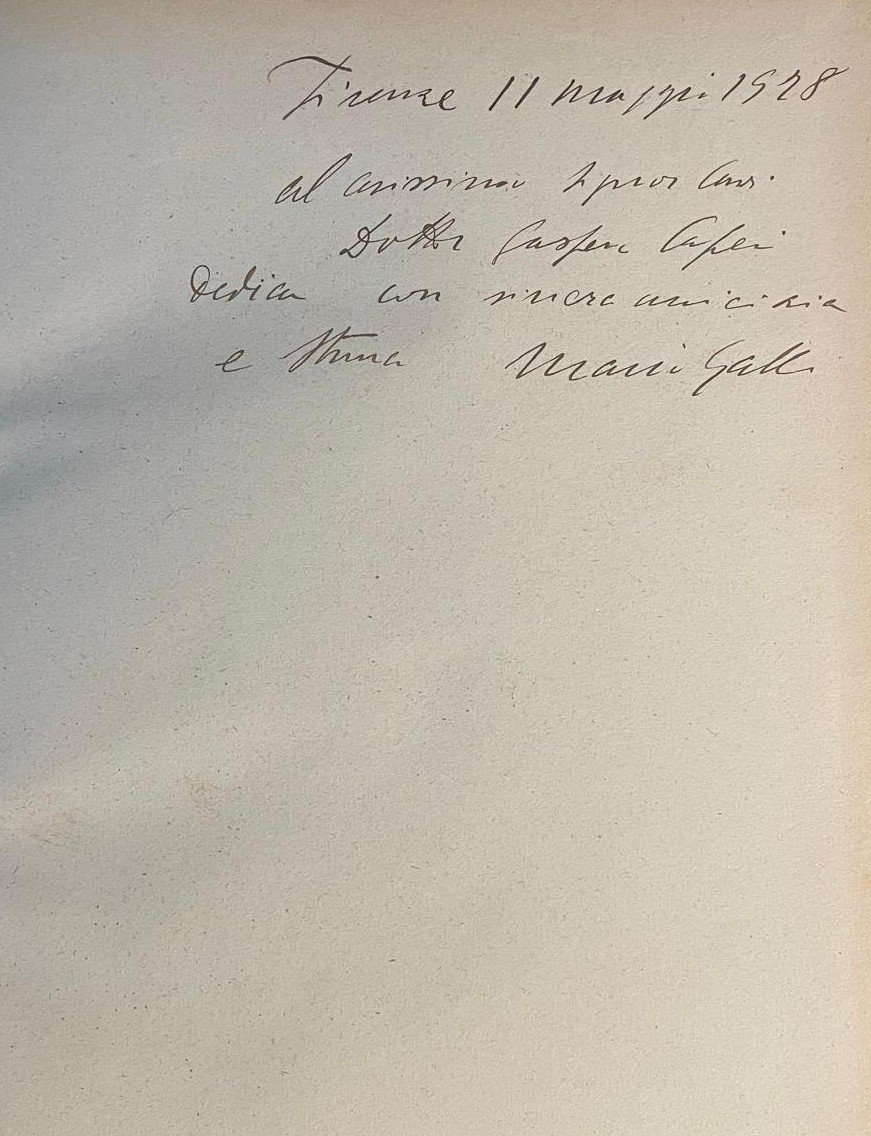 Firenze 11 maggio 1928
al carissimo signor Cav.
Dottr Gaspere
Dedica con sincera amicizia
e stima Mario Galli